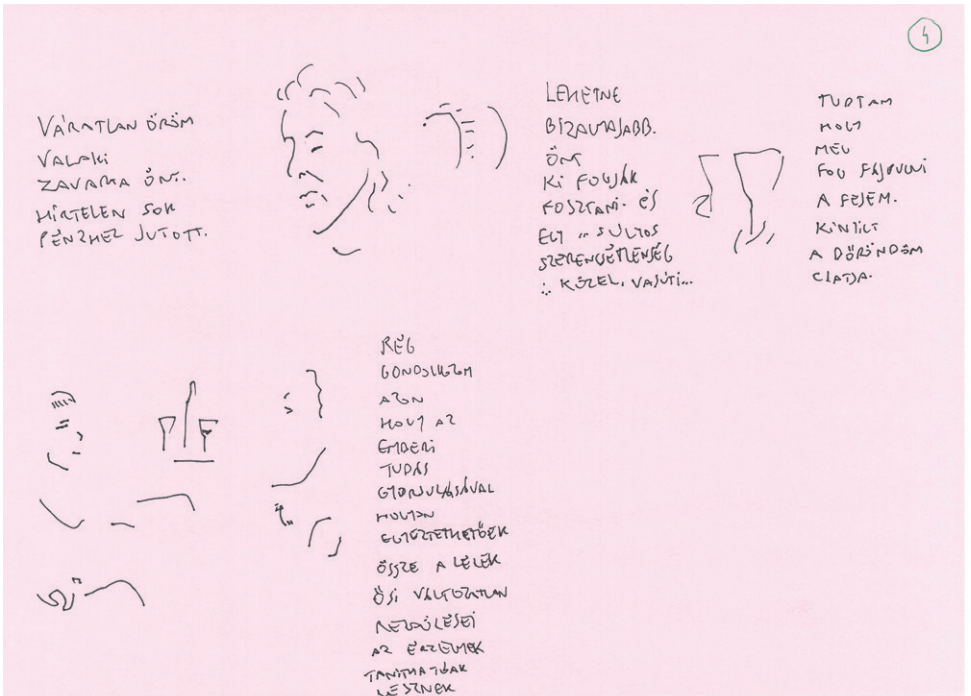 4
VÁRATLAN ÖRÖM
VALAKI
ZAVARJA ÖNT.
HIRTELEN SOK
PÉNZHEZ JUTOTT.
LEHETNE
BIZALMASABB.
ÖNT
KI FOGJÁK
FOSZTANI. ÉS
EGY .. SÚLYOS
SZERENCSÉTLENSÉG
KÖZEL. VASÚTI...
TUDTAM
HOGY
MÉG
FOG FÁJDULNI
A FEJEM.
KINYÍLT
A
RÉG
GONDOLKOZOM
AZON
HOGY AZ
EMBERI
TUDÁS
GYORSULÁSÁVAL
HOGYAN
EGYEZTETHETŐEK
ÖSSZE A LÉLEK
ŐSI VÁLTOZATLAN
REZDÜLÉSEI
AZ ÉRZELMEK
TANÍTHATÓAK
LESZNEK